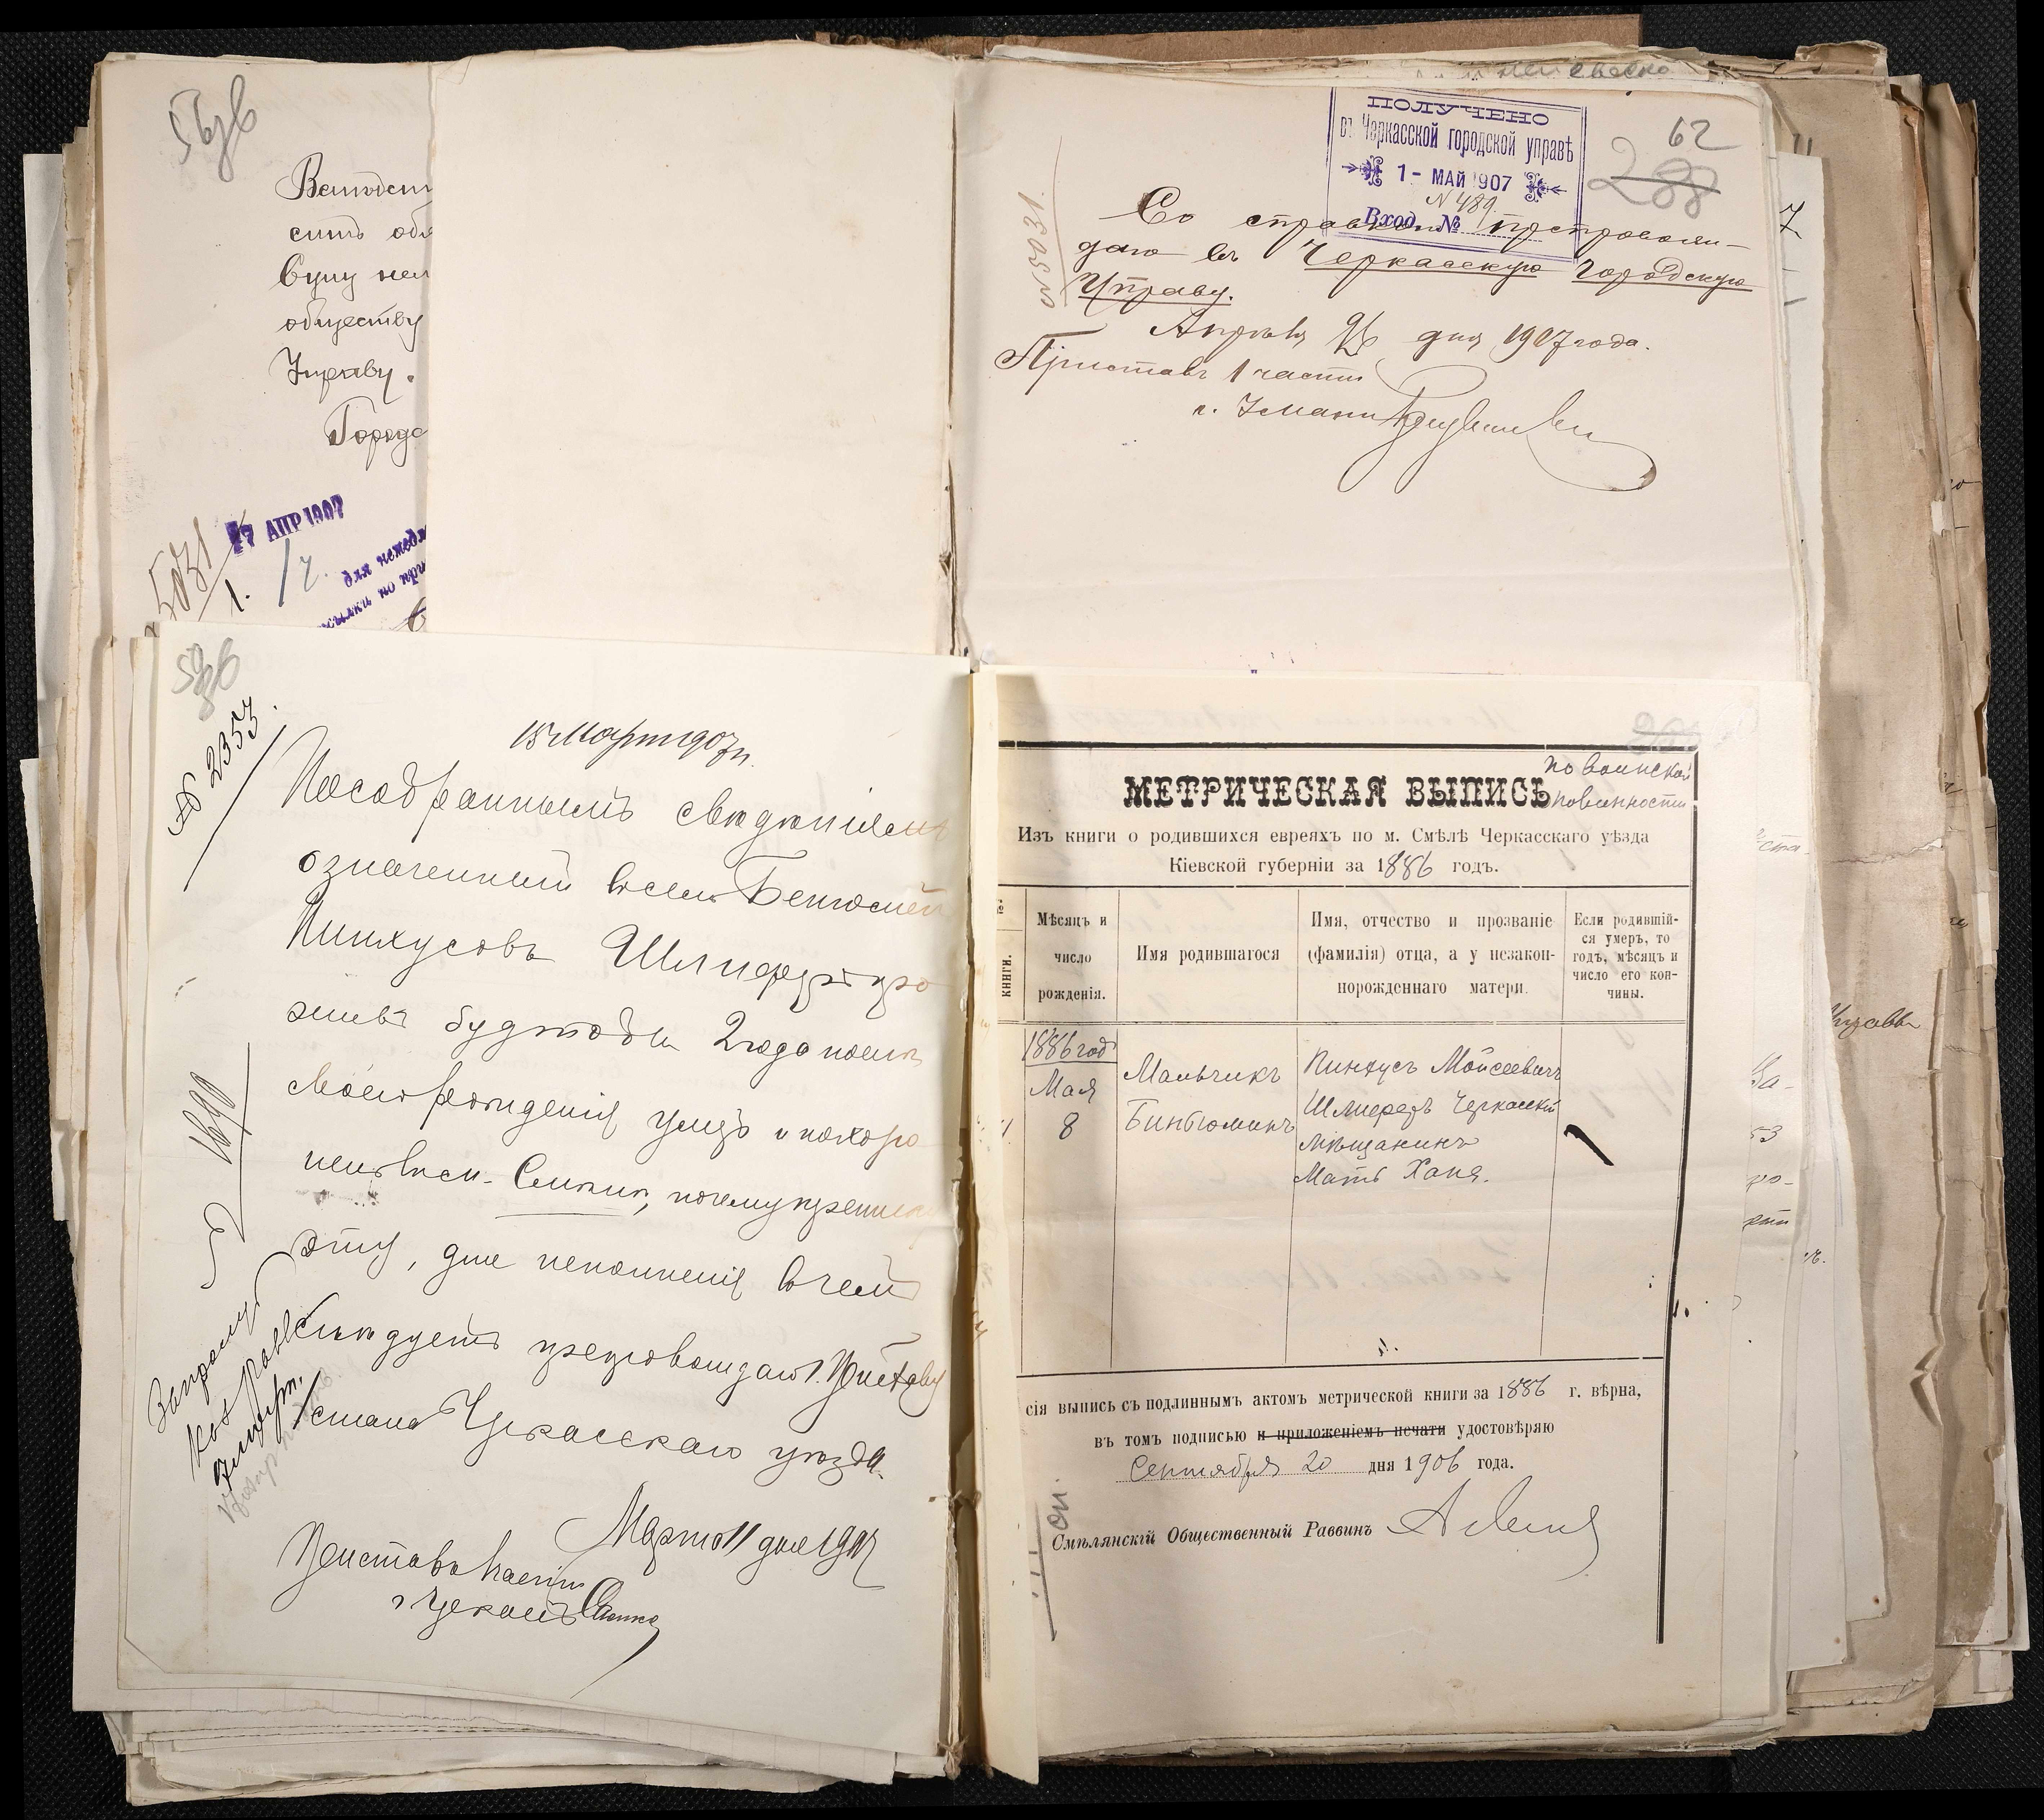 сить обя
Сугу
обществу
Управу.
Города
17 АПР 1907
5031
1.
1/ч.
для немедл
сылки по при
ПОЛУЧЕНО
въ Черкасской городской управѣ
1 - МАЙ 1907
N 489
Вход. №
62
288
N 5031.
Со справкою препровож-
даю въ Черкасскую Городскую
Управу.
Апрѣля 26 дня 1907 года.
Приставъ 1 части
г. Умани
№ 2353.
15 Марта 1907 г.
По собраннымъ свѣдѣніямъ
означенный въ семъ Беньюмен
Пинхусовъ Шлиферъ про
живъ будто бы 2 года послѣ
своего рожденія умеръ и похоро
ненъ въ м. Смѣлѣ, почему переписку
эту, для исполненія въ чемъ
слѣдуетъ препровождаю г. Приставу
стана Черкасскаго уѣзда.
Марта 11 дня 1907
Приставъ части
г. Черкассъ
1690
Запросить
каз равв
МЕТРИЧЕСКАЯ ВЫПИСЬ
по воинской
повинности
Изъ книги о родившихся евреяхъ по м. Смѣлѣ Черкасскаго уѣзда
Кіевской губерніи за 1886 годъ.
КНИГИ.
Мѣсяцъ и
число
рожденія.
Имя родившагося
Имя, отчество и прозваніе
(фамилія) отца, а у незакон-
норожденнаго матери.
Если родившій-
ся умеръ, то
годъ, мѣсяцъ и
число его кон-
чины.
1886 год
Мая
8
Мальчикъ
Биньюминъ
Пинхусъ Мойсеевичъ
Шлиферъ Черкасскій
мѣщанинъ
Мать Хана.
сія выпись съ подлиннымъ актомъ метрической книги за 1886 г. вѣрна,
въ томъ подписью и приложеніемъ печати удостовѣряю
Сентября 20 дня 1906 года.
Смѣлянскій Общественный Раввинъ